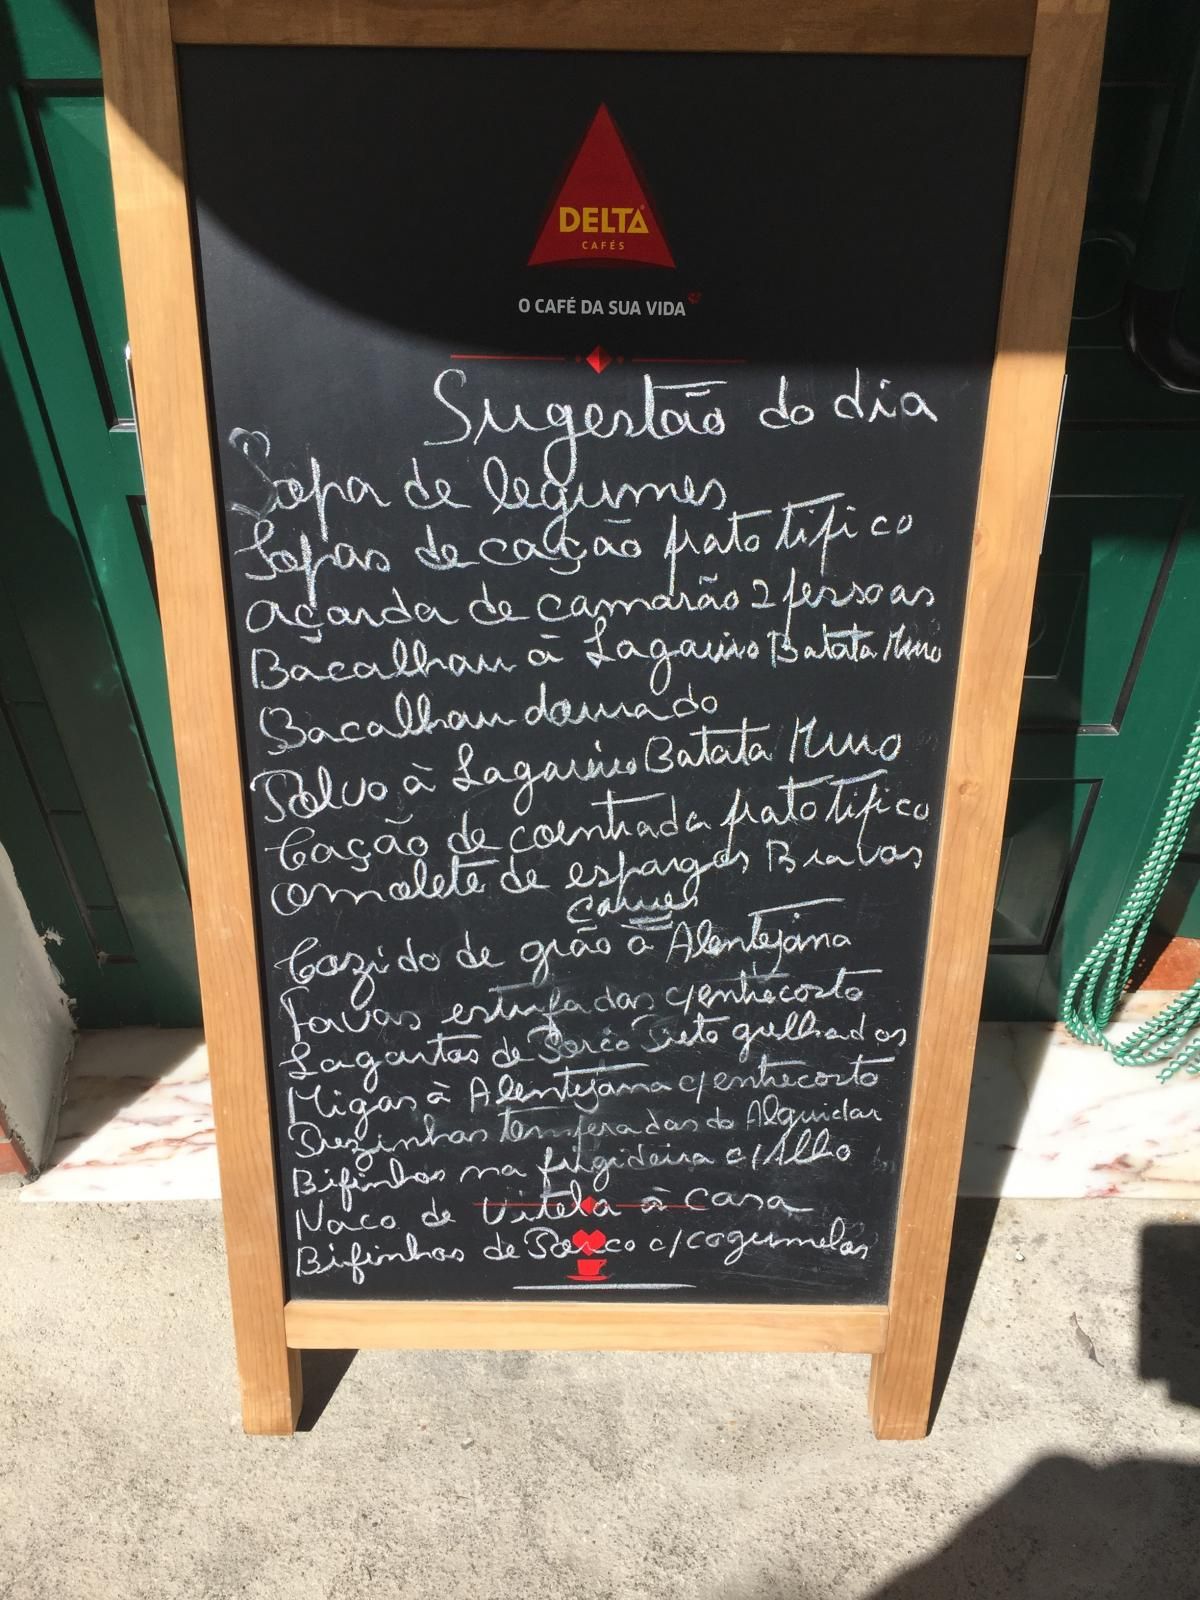 DELTA
CAFÉS
O CAFÉ DA SUA VIDA
Sugestão do dia
Sopa de legumes
Sopas de cação prato tipico
açarda de camarão 2 pessoas
Bacalhau à Lagareiro Batata Murro
Bacalhau dourado
Polvo à Lagareiro Batata Murro
Cação de coentrada prato tipico
omolete de espargos Bravos
Carnes
Cozido de grão à Alentejana
Favas estufadas c/entrecosto
Lagartos de Porco Preto grelhados
Migas à Alentejana c/entrecosto
Prezinhas temperadas do Alguidar
Bifinhos na frigideira c/Alho
Naco de Vitela à Casa
Bifinhos de Porco c/cogumelos